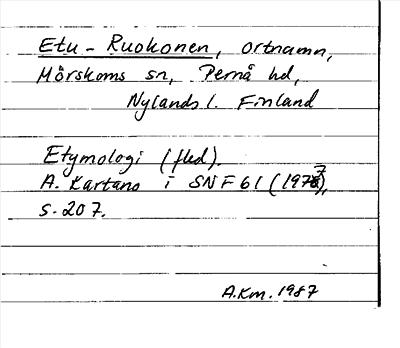 Etu-Ruokonen, ortnamn,
Mörskoms sn, Pernå hd,
Nylands l. Finland
Etymologi (fled).
A. Kartano i SNF 61 (1977),
s. 207.
A.Km. 1987